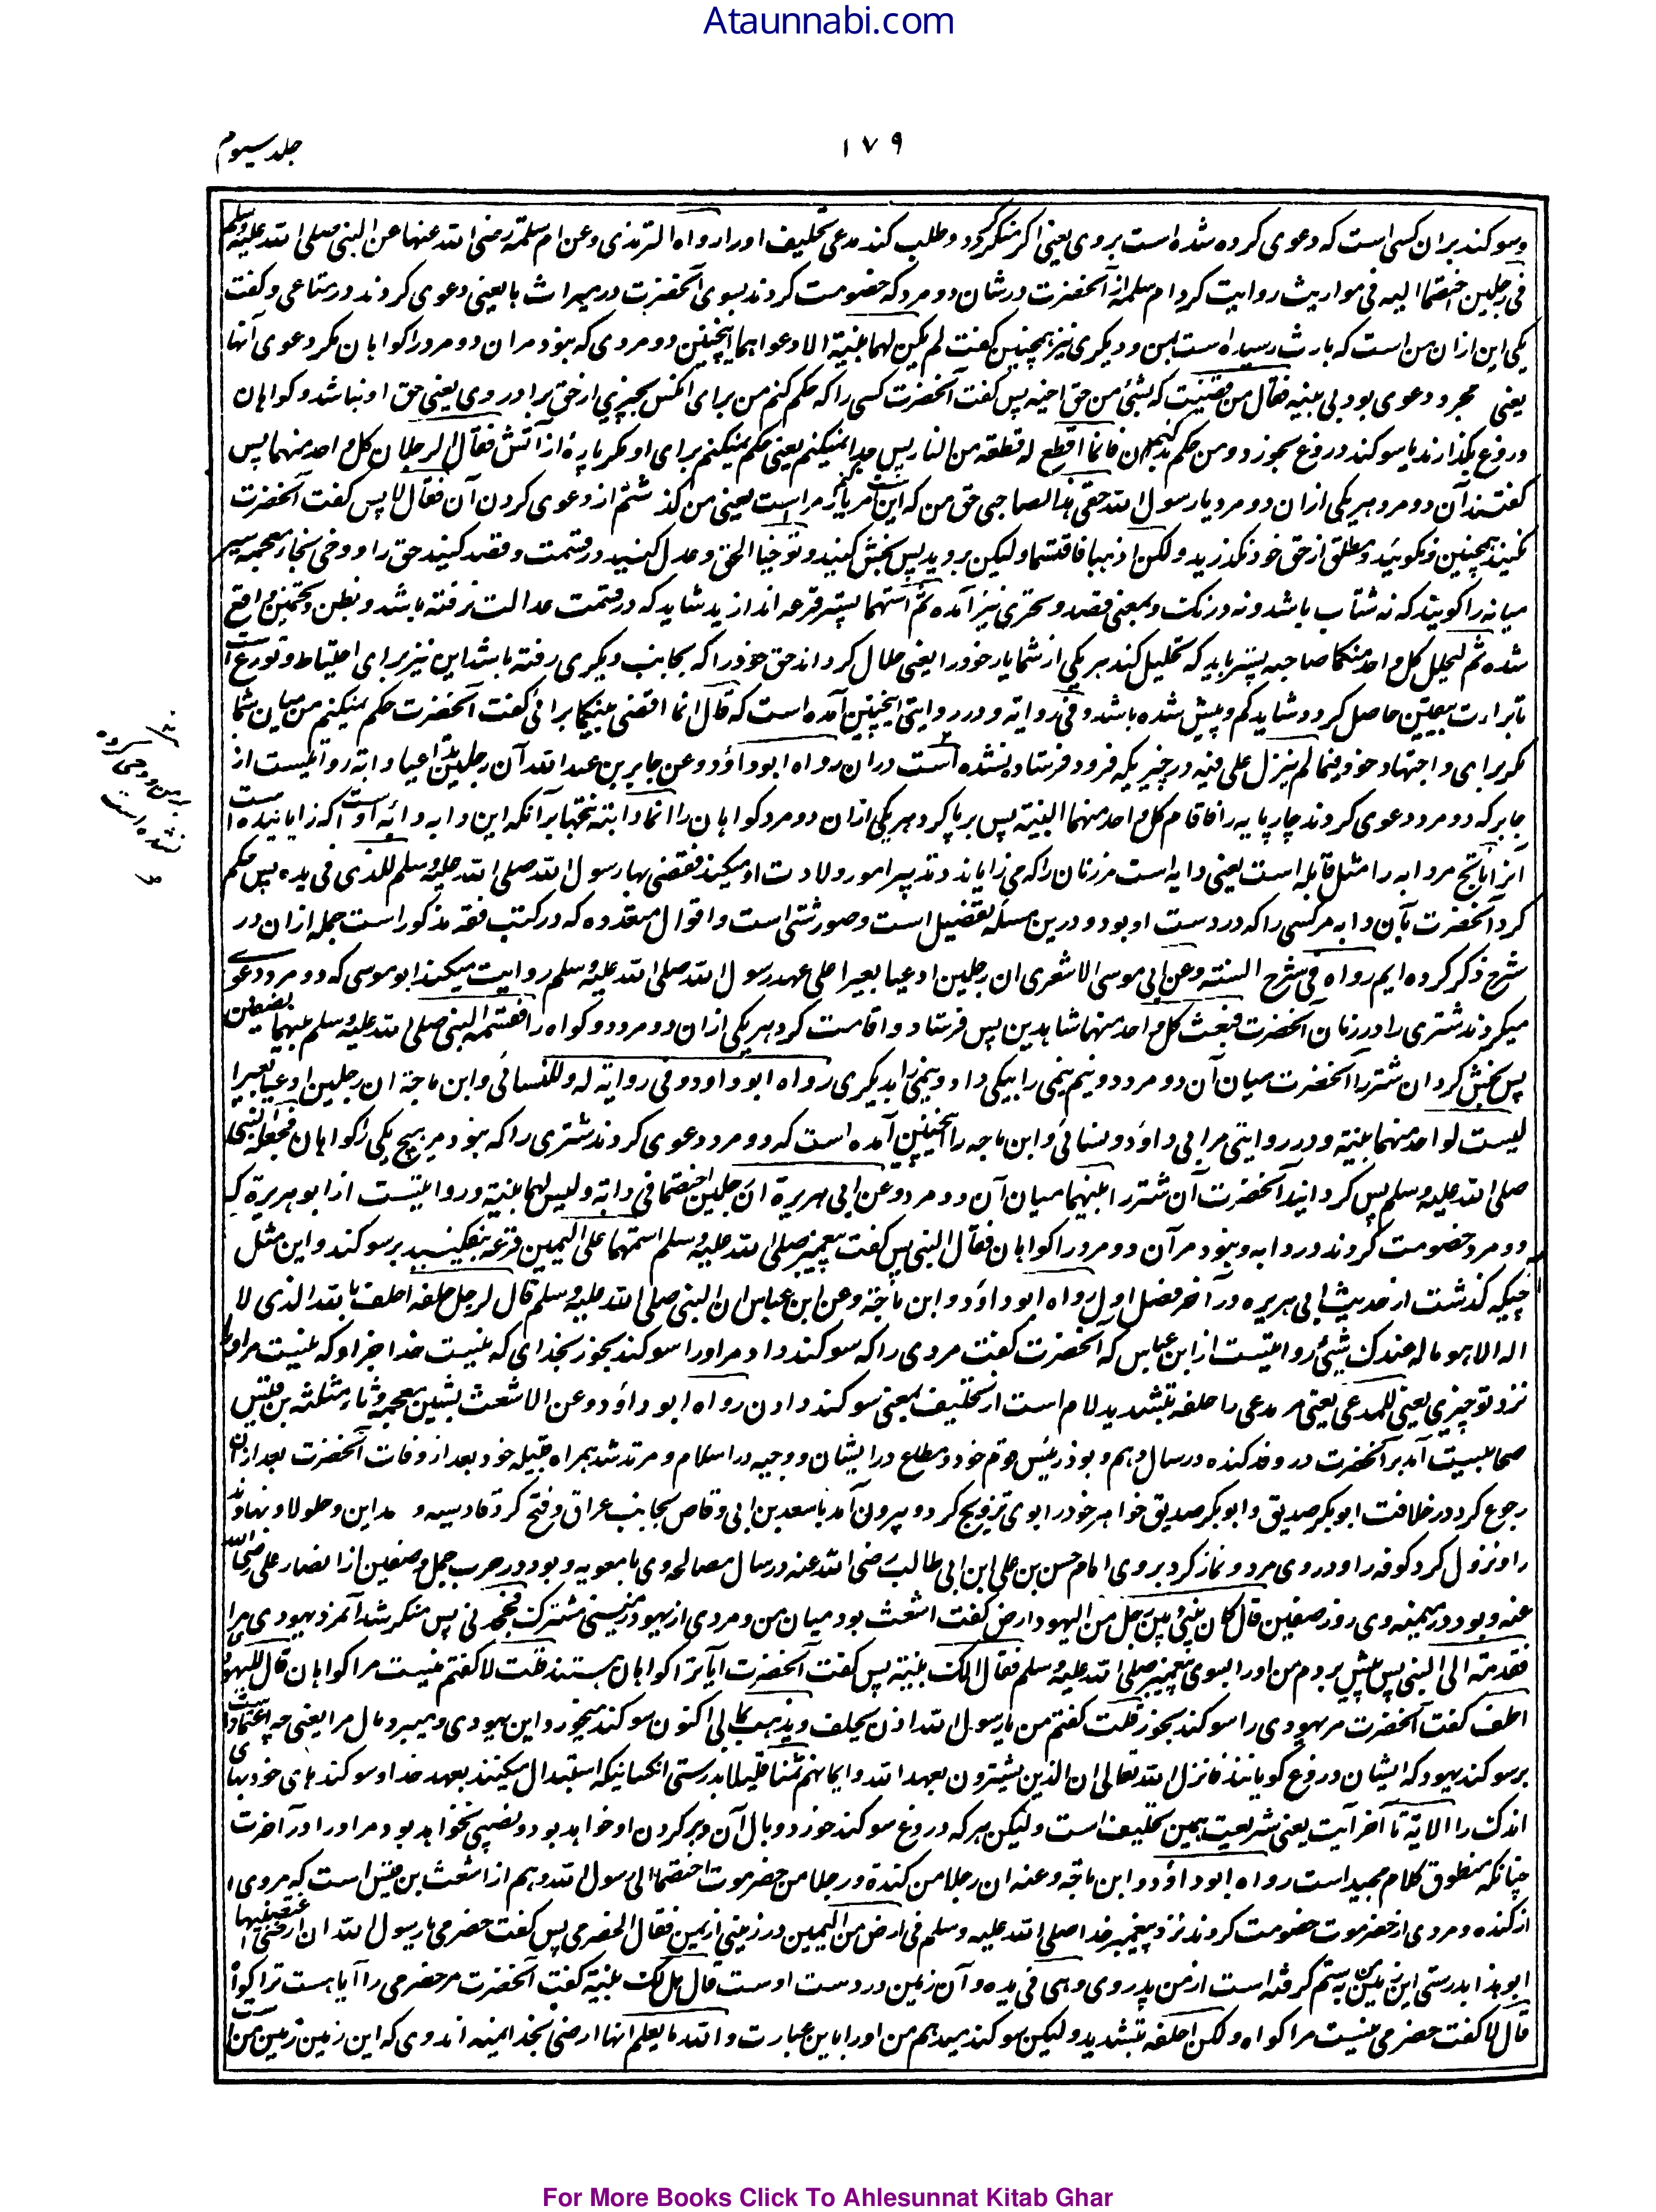 Ataunnabi.com
۱۷۹
جلد سیوم
و سوکند بران کسی است که دعوی کرده شده است بر وی یعنی اکر منکر کردد و طلب کند مدعی تحلیف او را رواه الترمذی وعن ام سلمة رضی الله عنها عن النبی صلی الله علیه وسلم
فی رجلین اختصما الیه فی مواریث روایت کرد ام سلمه از آنحضرت در شان دو مرد که خصومت کردند بسوی آنحضرت در میراث با یعنی دعوی کردند در متاعی و کفت
یکی این ازان من است که بارث رسیده است بمن و دیکری نیز همچنین کفت لم یکن لهما بینة الا دعواهما اینچنین دو مردی که نبود مران دو مرد را کواهان مکر دعوی آنها
یعنی مجرد دعوی بود بی بینه فقال من قضیت له بشئ من حق اخیه پس کفت آنحضرت کسی را که حکم کنم من برای آنکس بچیزی از حق برادر وی یعنی حق او نباشد و کواهان
دروغ بگذارند یا سوکند دروغ بخورد و من حکم کنم بدان فانما اقطع له قطعة من النار پس جدا نمیکنم یعنی حکم نمیکنم برای او مکر پارهٔ از آتش فقال الرجلان کل واحد منهما پس
کفتند آن دو مرد هر یکی ازان دو مرد یا رسول الله حقی هذا لصاحبی حق من که این مر یار مراست یعنی من کذشتم از دعوی کردن آن فقال لا پس کفت آنحضرت
نکنید همچنین و نکوئید و مطلق از حق خود نکذرید ولکن اذهبا فاقتسما ولیکن بروید پس بخش کنید وتوخیا الحق و عدل کنید در قسمت و قصد کنید حق را و وخی بخاء معجمه سیر
میانه را کویند که نه شتاب باشد و نه درنکت و بمعنی قصد و تحری نیز آمده ثم استهما پستر قرعه اندازید شاید که در قسمت عدالت نرفته باشد و بظن و تخمین واقع
شده ثم لیحلل کل واحد منکما صاحبه پستر باید که تحلیل کند هر یکی از شما یار خود را یعنی حلال کرداند حق خود را که بجانب دیکری رفته باشد این نیز برای احتیاط و تورع است
تا براءت بیقین حاصل کردد شاید کم و بیش شده باشد وفی روایة و در روایتی اینچنین آمده است که قال انما اقضی بینکما برائی کفت آنحضرت حکم نمیکنم من میان شما
مکر برای و اجتهاد خود فیما لم ینزل علی فیه در چیزیکه فرود فرستاده نشده است دران رواه ابو داؤد وعن جابر بن عبد الله آن رجلین تداعیا دابة روایتست از
جابر که دو مرد دعوی کردند چارپایه را فاقام کل واحد منهما البینة پس برپا کرد هر یکی ازان دو مرد کواهان را انها دابته نتجها برآنکه این دابه دابهٔ اوست که زایانیده است
آنرا ناتج مر دابه را مثل قابله است یعنی دایه است مر زنان را که می زایاند و تدبیر امور ولادت او میکند فقضی بها رسول الله صلی الله علیه وسلم للذی فی یده پس حکم
کرد آنحضرت بآن دابه مر کسی را که در دست او بود و درین مسئله تفصیل است و صور شتی است و اقوال متعدده که در کتب فقه مذکور است جمله ازان در
شرح ذکر کرده ایم رواه فی شرح السنة وعن ابی موسی الاشعری ان رجلین ادعیا بعیرا علی عهد رسول الله صلی الله علیه وسلم روایت میکند ابو موسی که دو مرد دعوی
میکردند شتری را در زمان آنحضرت فبعث کل واحد منهما شاهدین پس فرستاد و اقامت کرد هر یکی ازان دو مرد دو کواه را فقسمه النبی صلی الله علیه وسلم بینهما نصفین
پس بخش کرد ان شتر را آنحضرت میان آن دو مرد دو نیم نیمی را بیکی داد و نیمی را بدیکری رواه ابو داود وفی روایة له وللنسائی وابن ماجة ان رجلین ادعیا بعیرا
لیست لواحد منهما بینة و در روایتی مر ابی داؤد و نسائی و ابن ماجه را اینچنین آمده است که دو مرد دعوی کردند شتری را که نبود مر هیچ یکی را کواهان فجعله النبی
صلی الله علیه وسلم پس کردانید آنحضرت آن شتر را بینهما میان آن دو مرد وعن ابی هریرة ان رجلین اختصما فی دابة ولیس لهما بینة و روایتست از ابو هریرة که
دو مرد خصومت کردند در دابه و نبود مر آن دو مرد را کواهان فقال النبی پس کفت پیغمبر صلی الله علیه وسلم استهما علی الیمین قرعه بفکنید بر سوکند و این مثل
چیزیکه کذشت از حدیث ابی هریره در آخر فصل اول رواه ابو داؤد و ابن ماجة وعن ابن عباس ان النبی صلی الله علیه وسلم قال لرجل حلفه احلف بالله الذی لا
اله الا هو ماله عندک شیئ روایتست از ابن عباس که آنحضرت کفت مردی را که سوکند داد مر او را سوکند بخور بخدای که نیست خدا جز او که نیست مر او را
نزد تو چیزی یعنی للمدعی یعنی مر مدعی را حلفه بتشدید لام است از تحلیف بمعنی سوکند دادن رواه ابو داؤد وعن الاشعث بشین معجمه و ثاء مثلثه بن قیس
صحابیست آمد بر آنحضرت در وفد کنده در سال دهم و بود رئیس قوم خود و مطاع در ایشان و وجیه در اسلام و مرتد شد همراه قبیله خود بعد از وفات آنحضرت بعد ازان
رجوع کرد در خلافت ابو بکر صدیق و ابو بکر صدیق خواهر خود را بوی تزویج کرد و بیرون آمد با سعد بن ابی وقاص بجانب عراق و فتح کرد قادسیه و مداین و جلولا و نهاوند
را و نزول کرد کوفه را و در وی مرد و نماز کرد بر وی امام حسن بن علی ابن ابی طالب رضی الله عنه در سال مصالحه وی با معویه و بود در حرب جمل و صفین از انصار علی رضی الله
عنه و بود در میمنه وی روز صفین قال کان بینی وبین رجل من الیهود ارض کفت اشعث بود میان من و مردی از یهود زمینی مشترک فجحدنی پس منکر شد آنمرد یهودی مرا
فقدمته الی النبی پس پیش بردم من او را بسوی پیغمبر صلی الله علیه وسلم فقال الک بینة پس کفت آنحضرت آیا ترا کواهان هستند قلت لا کفتم نیست مرا کواهان قال للیهودی
احلف کفت آنحضرت مر یهودی را سوکند بخور قلت کفتم من یا رسول الله اذن یحلف ویذهب بمالی اکنون سوکند میخورد این یهودی و میبرد مال مرا یعنی چه اعتماد است
بر سوکند یهود که ایشان دروغ کویانند فانزل الله تعالی ان الذین یشترون بعهد الله وایمانهم ثمنا قلیلا بدرستی آنکسانیکه استبدال میکنند بعهد خدا و سوکندهای خود بهای
اندک را الآیة تا آخر آیت یعنی شریعت همین تحلیف است ولیکن هر که دروغ سوکند خورد وبال آن بر کردن او خواهد بود و نصیبی نخواهد بود مر او را در آخرت
چنانکه منطوق کلام مجید است رواه ابو داؤد و ابن ماجة وعنه ان رجلا من کندة ورجلا من حضرموت اختصما الی رسول الله و هم از اشعث بن قیس است که مردی
از کنده و مردی از حضرموت خصومت کردند نزد پیغمبر خدا صلی الله علیه وسلم فی ارض من الیمن در زمینی از یمن فقال الحضرمی پس کفت حضرمی یا رسول الله ان ارضی اغتصبنیها
ابو هذا بدرستی این زمین من بستم کرفته است از من پدر وی وهی فی یده و آن زمین در دست اوست قال هل لک بینة کفت آنحضرت مر حضرمی را آیا هست ترا کواه
قال لا کفت حضرمی نیست مرا کواه ولکن احلفه بتشدید ولیکن سوکند میدهم من او را باین عبارت والله ما یعلم انها ارضی بخدا نمیداند وی که این زمین زمین من است
For More Books Click To Ahlesunnat Kitab Ghar